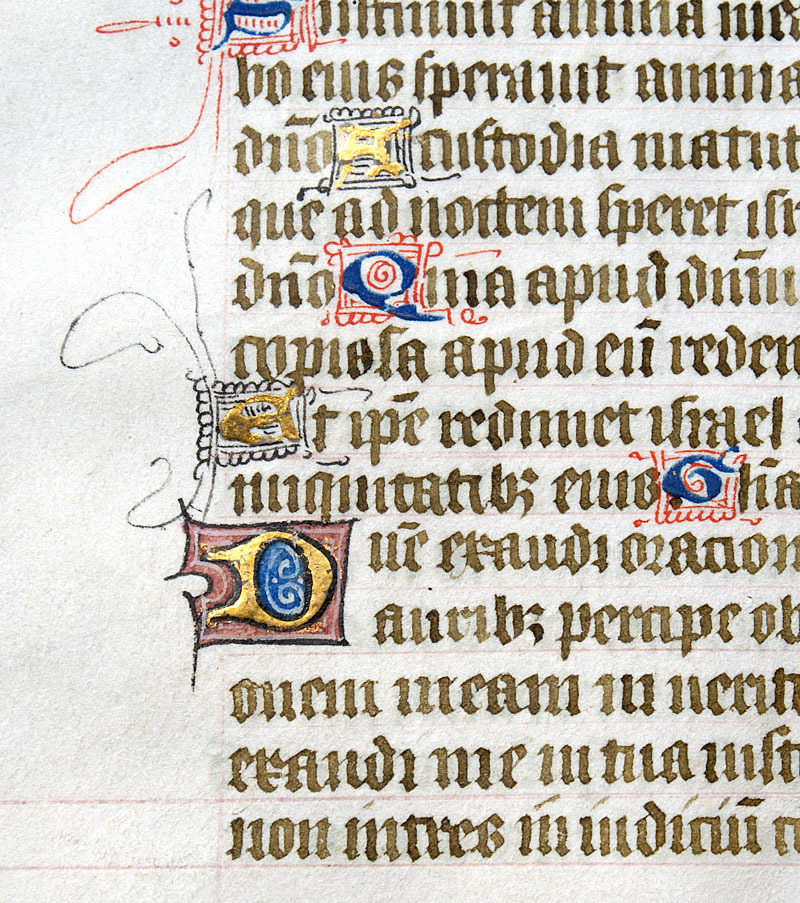 Sustinuit anima mea
bo eius sperauit anima
dño A custodia matut
que ad noctem speret isr
dño Quia apud dñm
copiosa apud eũ redem
Et ip̃e redimet israel
iniquitatibꝫ eius Gl̃ia
Dñe exaudi oracion
auribꝫ percipe ob
onem meam in uerit
exaudi me in tua iust
non intres in iudiciũ c